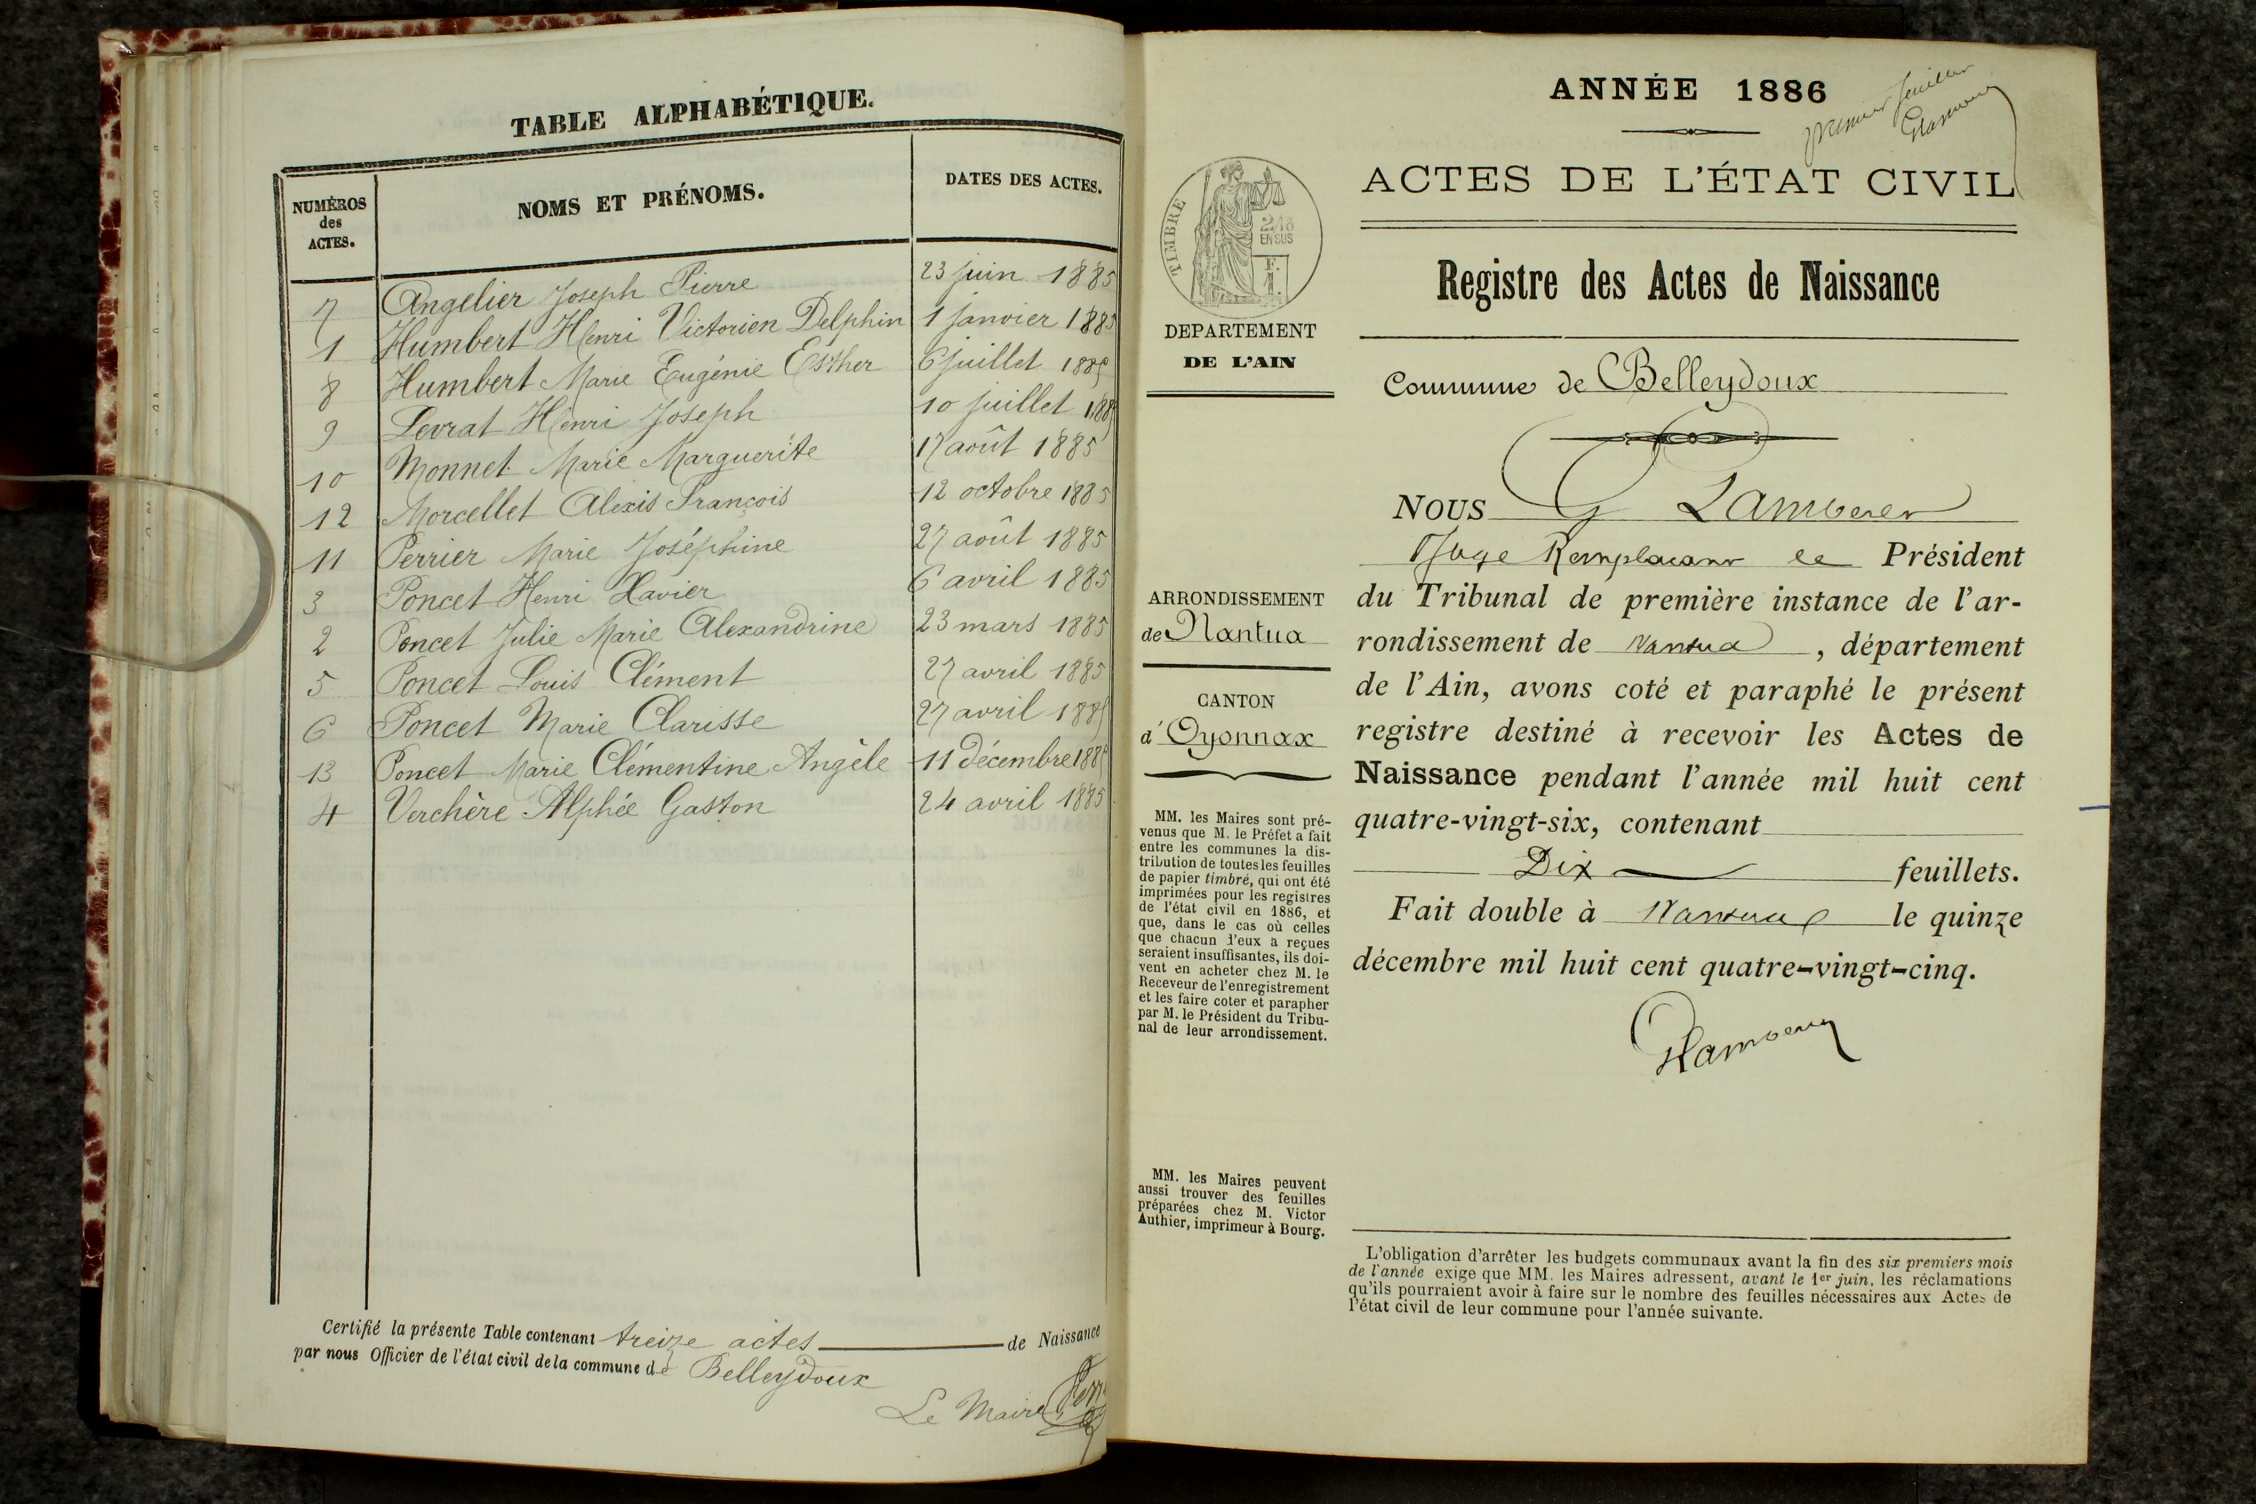 TABLE ALPHABÉTIQUE.
NUMÉROS
des
ACTES.
NOMS ET PRÉNOMS.
DATES DES ACTES.
7 Angelier Joseph Pierre 23 juin 1885
1 Humbert Henri Victorien Delphin 1 janvier 1885
8 Humbert Marie Eugénie Esther 6 juillet 1885
9 Levrat Henri Joseph 10 juillet 1885
10 Monnet Marie Marguerite 17 août 1885
12 Morcellet Alexis François 12 octobre 1885
11 Perrier Marie Joséphine 27 août 1885
3 Poncet Henri Xavier 6 avril 1885
2 Poncet Julie Marie Alexandrine 23 mars 1885
5 Poncet Louis Clément 27 avril 1885
6 Poncet Marie Clarisse 27 avril 1885
13 Poncet Marie Clémentine Angèle 11 décembre 1885
4 Verchère Alphée Gaston 24 avril 1885
Certifié la présente Table contenant treize actes de Naissance
par nous Officier de l'état civil de la commune de Belleydoux
Le Maire
ANNÉE 1886
premier feuillet
ACTES DE L'ÉTAT CIVIL
TIMBRE
2/10
EN SUS
Registre des Actes de Naissance
DEPARTEMENT
DE L'AIN
Commune de Belleydoux
NOUS G Lambert
Juge Remplacant le Président
du Tribunal de première instance de l'ar-
rondissement de Nantua, département
de l'Ain, avons coté et paraphé le présent
registre destiné à recevoir les Actes de
Naissance pendant l'année mil huit cent
quatre-vingt-six, contenant
Dix feuillets.
Fait double à Nantua le quinze
décembre mil huit cent quatre-vingt-cinq.
ARRONDISSEMENT
de Nantua
CANTON
d'Oyonnax
MM. les Maires sont pré-
venus que M. le Préfet a fait
entre les communes la dis-
tribution de toutes les feuilles
de papier timbré, qui ont été
imprimées pour les registres
de l'état civil en 1886, et
que, dans le cas où celles
que chacun d'eux a reçues
seraient insuffisantes, ils doi-
vent en acheter chez M. le
Receveur de l'enregistrement
et les faire coter et parapher
par M. le Président du Tribu-
nal de leur arrondissement.
MM. les Maires peuvent
aussi trouver des feuilles
préparées chez M. Victor
Authier, imprimeur à Bourg.
L'obligation d'arrêter les budgets communaux avant la fin des six premiers mois
de l'année exige que MM. les Maires adressent, avant le 1er juin, les réclamations
qu'ils pourraient avoir à faire sur le nombre des feuilles nécessaires aux Actes de
l'état civil de leur commune pour l'année suivante.